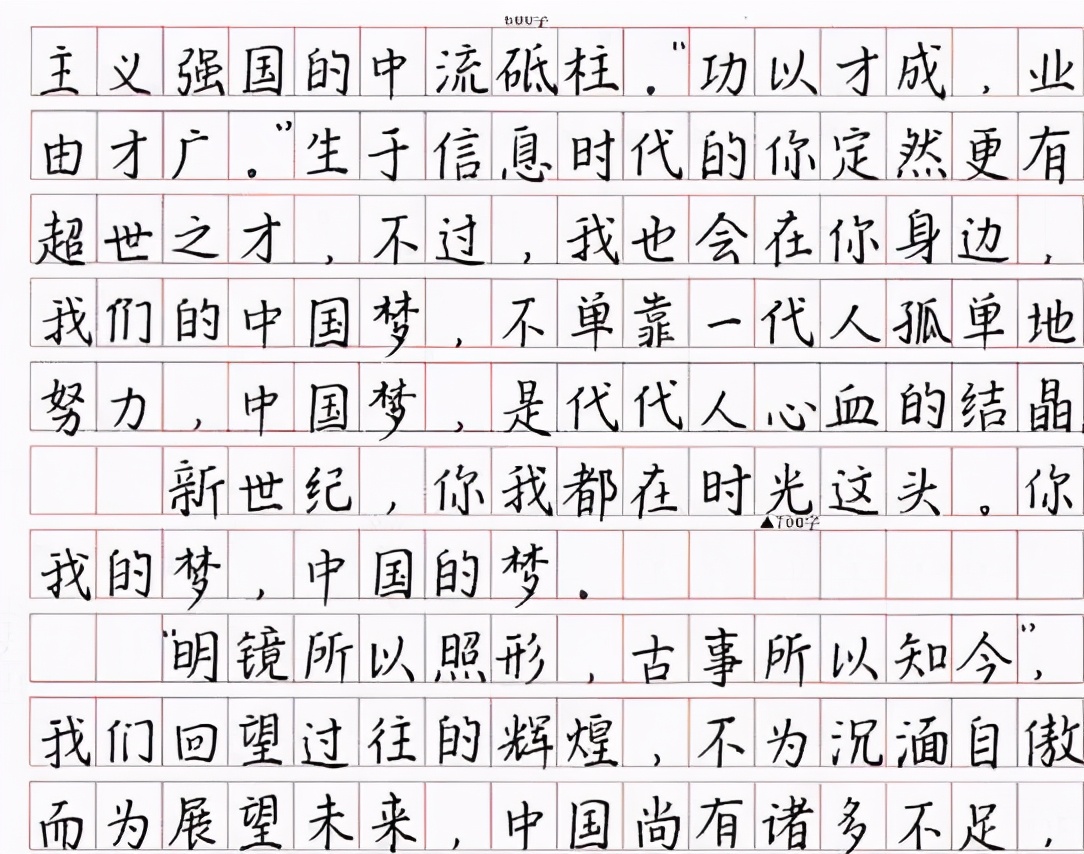 600字
主义强国的中流砥柱."功以才成,业
由才广。"生于信息时代的你定然更有
超世之才,不过,我也会在你身边,
我们的中国梦,不单靠一代人孤单地
努力,中国梦,是代代人心血的结晶.
新世纪,你我都在时光这头。你
▲700字
我的梦,中国的梦.
"明镜所以照形,古事所以知今",
我们回望过往的辉煌,不为沉湎自傲
而为展望未来,中国尚有诸多不足,